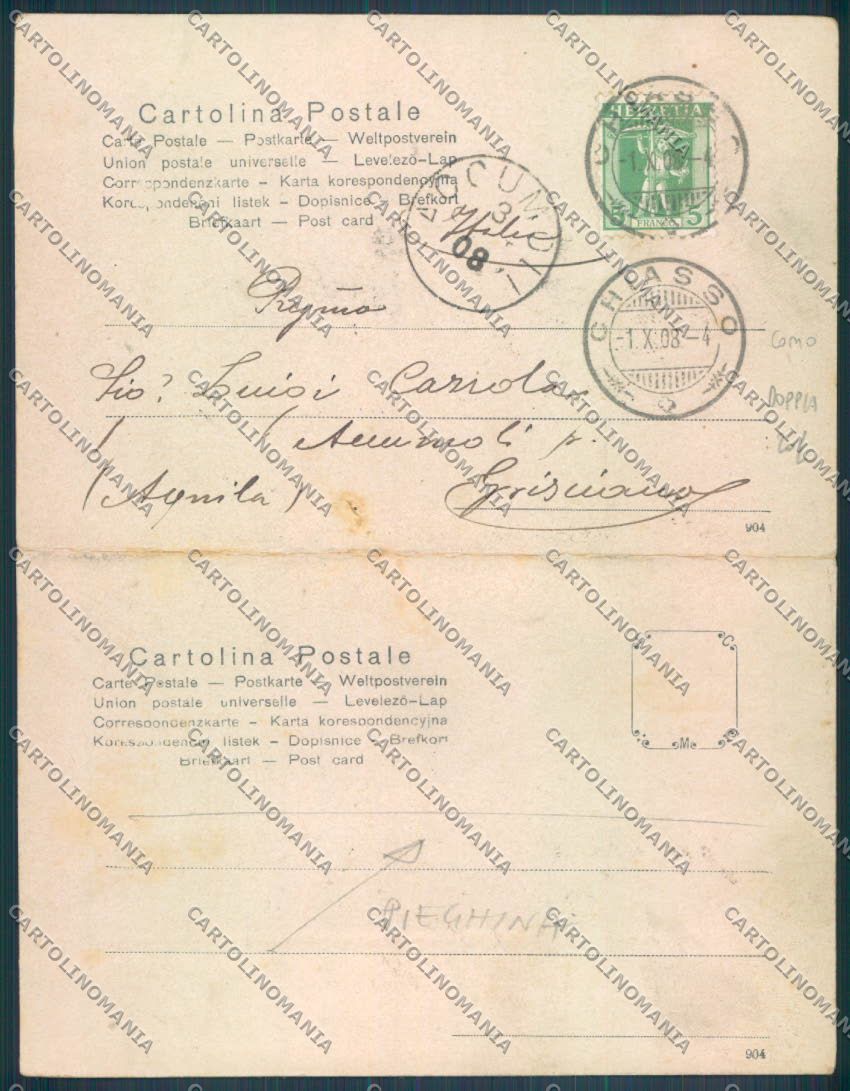 Cartolina Postale
Carte Postale — Postkarte — Weltpostverein
Union postale universelle — Levelező-Lap
Correspondenzkarte – Karta korespondencyjna
Korespondencni listek – Dopisnice – Brefkort
Briefkaart — Post card
HELVETIA
5 FRANCO 5
CHIASSO
-1.X.08-4
ACCUMOLI
3
08
CHIASSO
-1.X.08-4
Como
DOPPIA
Luigi
Accumoli p.
(Aquila)
Grisciano
904
Cartolina Postale
Carte Postale — Postkarte — Weltpostverein
Union postale universelle — Levelező-Lap
Correspondenzkarte – Karta korespondencyjna
Korespondencni listek – Dopisnice – Brefkort
Briefkaart — Post card
C
M
PIEGHINA
904
CARTOLINOMANIA